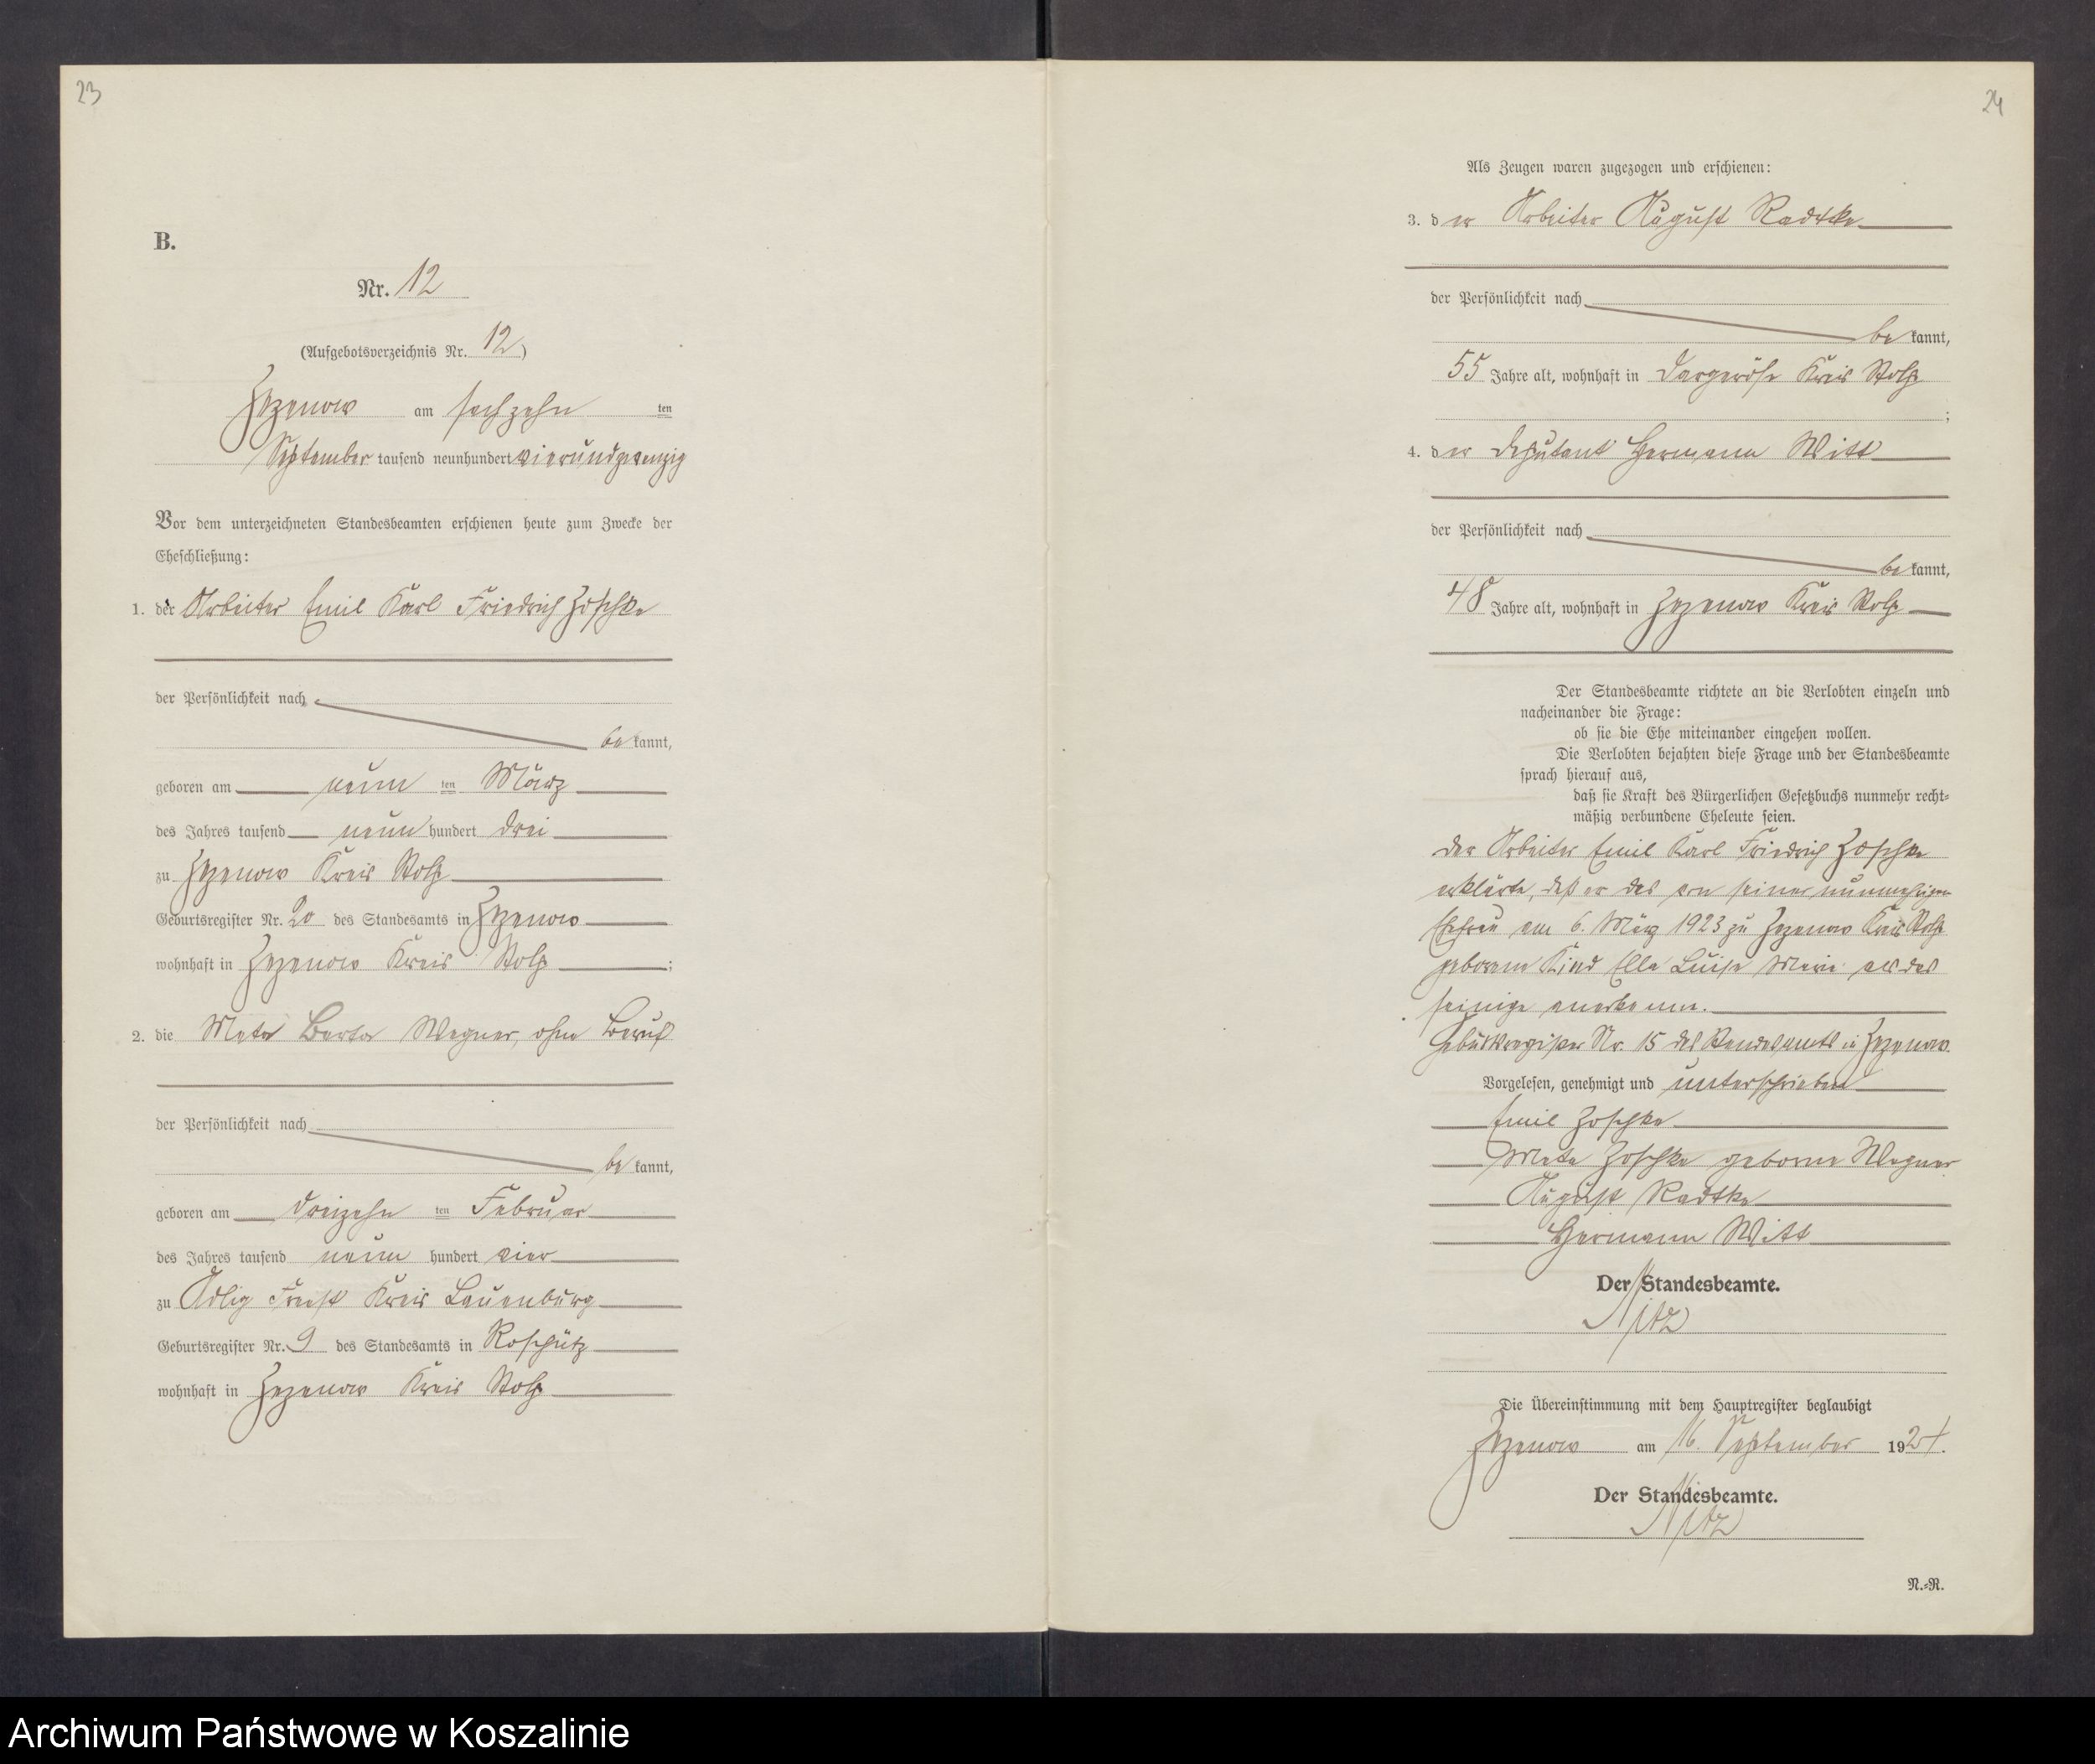 23
B.
Nr. 12
(Aufgebotsverzeichnis Nr. 12)
Zezenow am sechzehn ten
September tausend neunhundert vierundzwanzig
Vor dem unterzeichneten Standesbeamten erschienen heute zum Zwecke der
Eheschließung:
1. der Arbeiter Emil Karl Friedrich Zoschke
der Persönlichkeit nach
be kannt,
geboren am neun ten März
des Jahres tausend neun hundert drei
zu Zezenow Kreis Stolp
Geburtsregister Nr. 20 des Standesamts in Zezenow
wohnhaft in Zezenow Kreis Stolp ;
2. die Meta Berta Wegner, ohne Beruf
der Persönlichkeit nach
be kannt,
geboren am dreizehn ten Februar
des Jahres tausend neun hundert vier
zu Adlig Freest Kreis Lauenburg
Geburtsregister Nr. 9 des Standesamts in Roschütz
wohnhaft in Zezenow Kreis Stolp
24
Als Zeugen waren zugezogen und erschienen:
3. der Arbeiter August Radtke
der Persönlichkeit nach
be kannt,
55 Jahre alt, wohnhaft in Dargeröse Kreis Stolp
;
4. der Deputant Hermann Witt
der Persönlichkeit nach
be kannt,
48 Jahre alt, wohnhaft in Zezenow Kreis Stolp
Der Standesbeamte richtete an die Verlobten einzeln und
nacheinander die Frage:
ob sie die Ehe miteinander eingehen wollen.
Die Verlobten bejahten diese Frage und der Standesbeamte
sprach hierauf aus,
daß sie Kraft des Bürgerlichen Gesetzbuchs nunmehr recht-
mäßig verbundene Eheleute seien.
Der Arbeiter Emil Karl Friedrich Zoschke
erklärte, daß er das von seiner nunmehrigen
Ehefrau am 6. März 1923 zu Zezenow Kreis Stolp
geborene Kind Ella Luise Marie als das
seinige anerkenne.
Geburtsregister Nr. 15 des Standesamts in Zezenow.
Vorgelesen, genehmigt und unterschrieben
Emil Zoschke
Meta Zoschke geborene Wegner
August Radtke
Hermann Witt
Der Standesbeamte.
Nitz
Die Übereinstimmung mit dem Hauptregister beglaubigt
Zezenow am 16. September 1924.
Der Standesbeamte.
Nitz
N.-R.
Archiwum Państwowe w Koszalinie